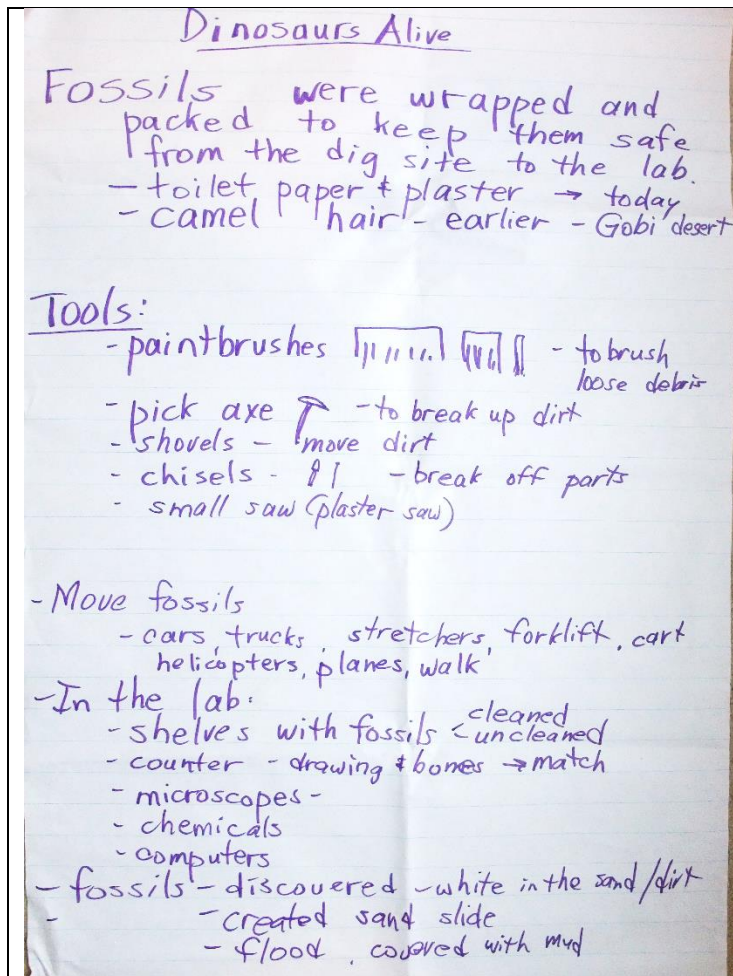 Dinosaurs Alive
Fossils were wrapped and
packed to keep them safe
from the dig site to the lab.
- toilet paper & plaster → today
- camel hair - earlier - Gobi desert
Tools:
- paintbrushes - to brush
loose debris
- pick axe - to break up dirt
- shovels - move dirt
- chisels - - break off parts
- small saw (plaster saw)
- Move fossils
- cars, trucks, stretchers, forklift, cart
helicopters, planes, walk
- In the lab:
- shelves with fossils < cleaned
uncleaned
- counter - drawing & bones → match
- microscopes -
- chemicals
- computers
- fossils - discovered - white in the sand/dirt
- - created sand slide
- flood, covered with mud